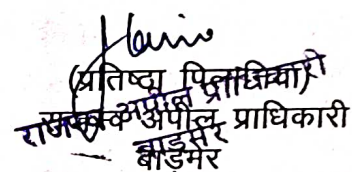 (प्रतिष्ठा पिलानिया)
राजस्व अपील प्राधिकारी
राजस्व अपील प्राधिकारी
बाड़मेर
बाड़मेर